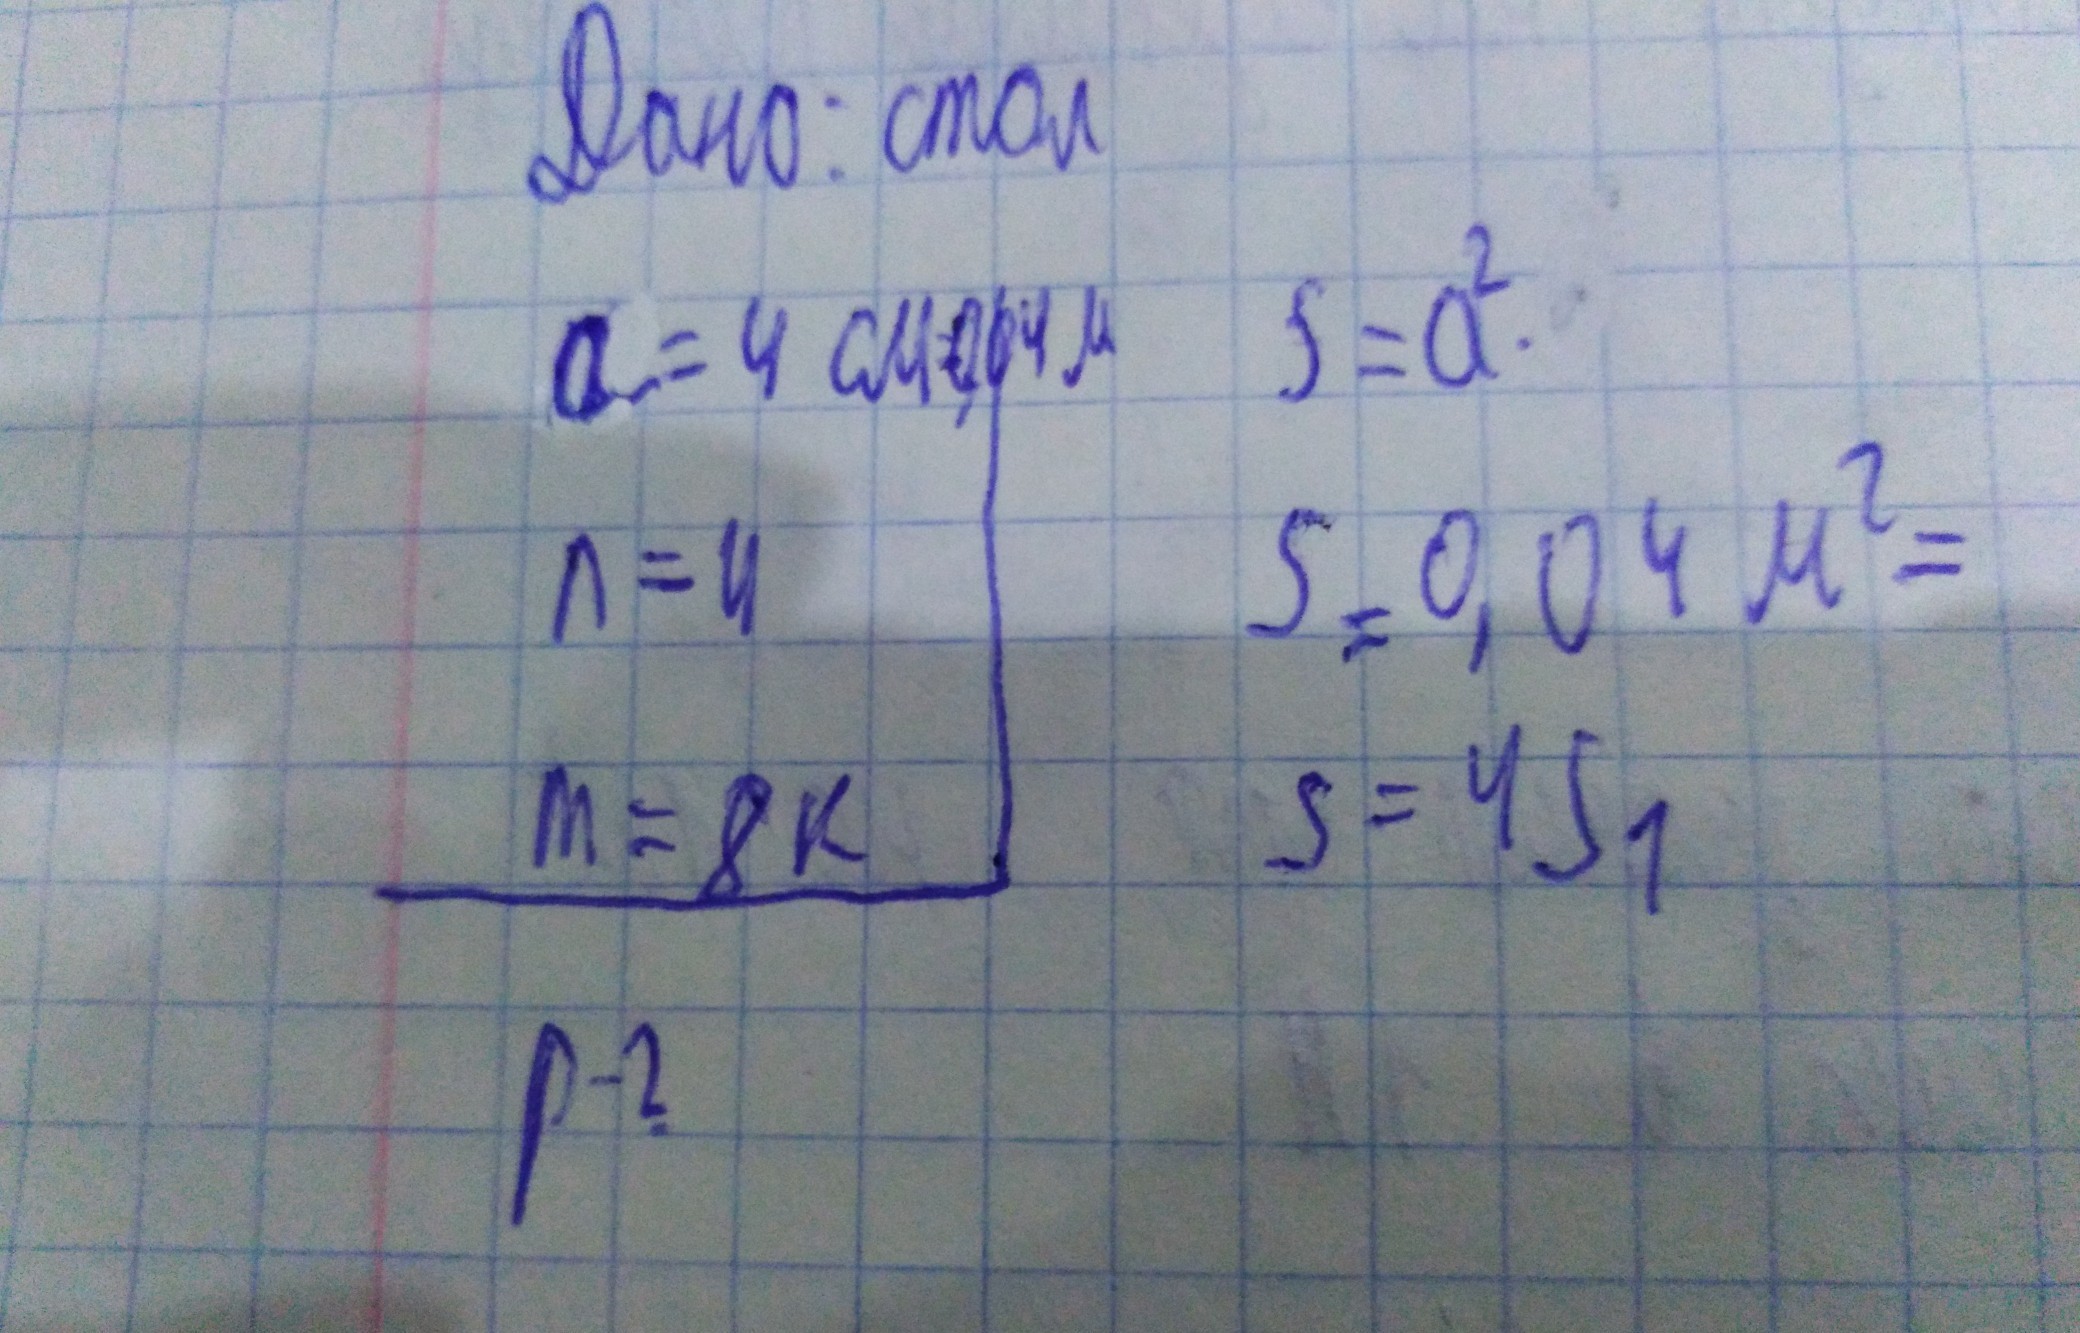 Дано: стол
a = 4 см=0,04м
n = 4
m = 8 к
p - ?
S = a².
S = 0,04 м² =
S = 4S₁